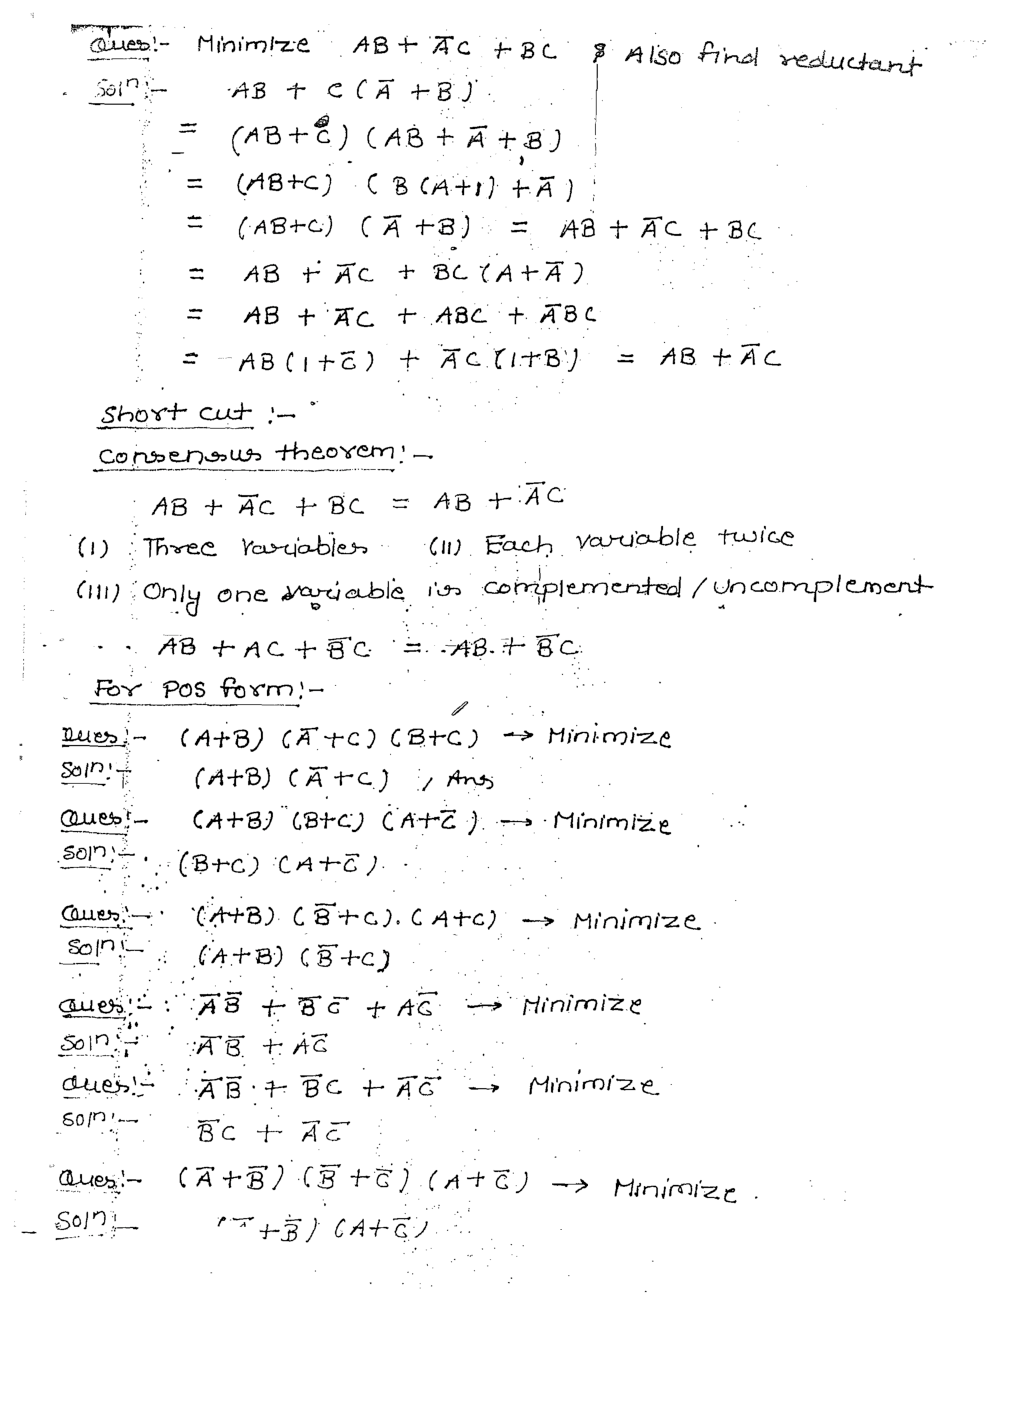 Ques:- Minimize AB + A̅C + BC & Also find reductant
Soln:- AB + C(A̅ + B)
= (AB+C) (AB + A̅ + B)
= (AB+C) (B(A+1) + A̅)
= (AB+C) (A̅+B) = AB + A̅C + BC
= AB + A̅C + BC(A+A̅)
= AB + A̅C + ABC + A̅BC
= AB(1+C̅) + A̅C(1+B) = AB + A̅C
Short cut :-
Consensus theorem:-
AB + A̅C + BC = AB + A̅C
(I) Three Variables (II) Each variable twice
(III) Only one variable is complemented / Uncomplement
AB + AC + B̅C = AB + B̅C
For POS form:-
Ques:- (A+B) (A̅+C) (B+C) → Minimize
Soln:- (A+B) (A̅+C) , Ans
Ques:- (A+B) (B+C) (A+C̅) → Minimize
Soln:- (B+C) (A+C̅)
Ques:- (A+B) (B̅+C). (A+C) → Minimize
Soln:- (A+B) (B̅+C)
Ques:- A̅B̅ + B̅C̅ + AC̅ → Minimize
Soln:- A̅B̅ + AC̅
Ques:- A̅B̅ + B̅C + A̅C̅ → Minimize
Soln:- B̅C + A̅C̅
Ques:- (A̅+B̅) (B̅+C̅) (A+C̅) → Minimize.
Soln:- +B̅) (A+C̅)